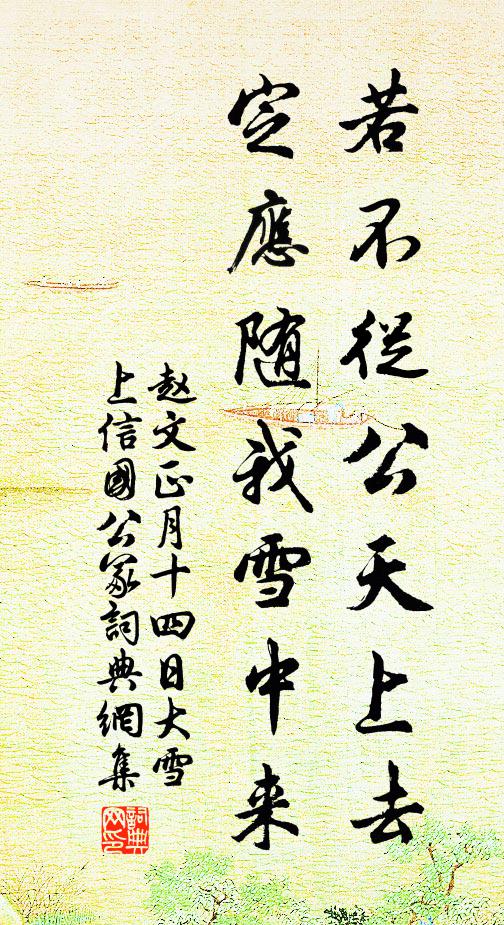 若不從公天上去
定應隨我雪中来
赵文正月十四日大雪
上信國公冢詞典網集
詞典
网印